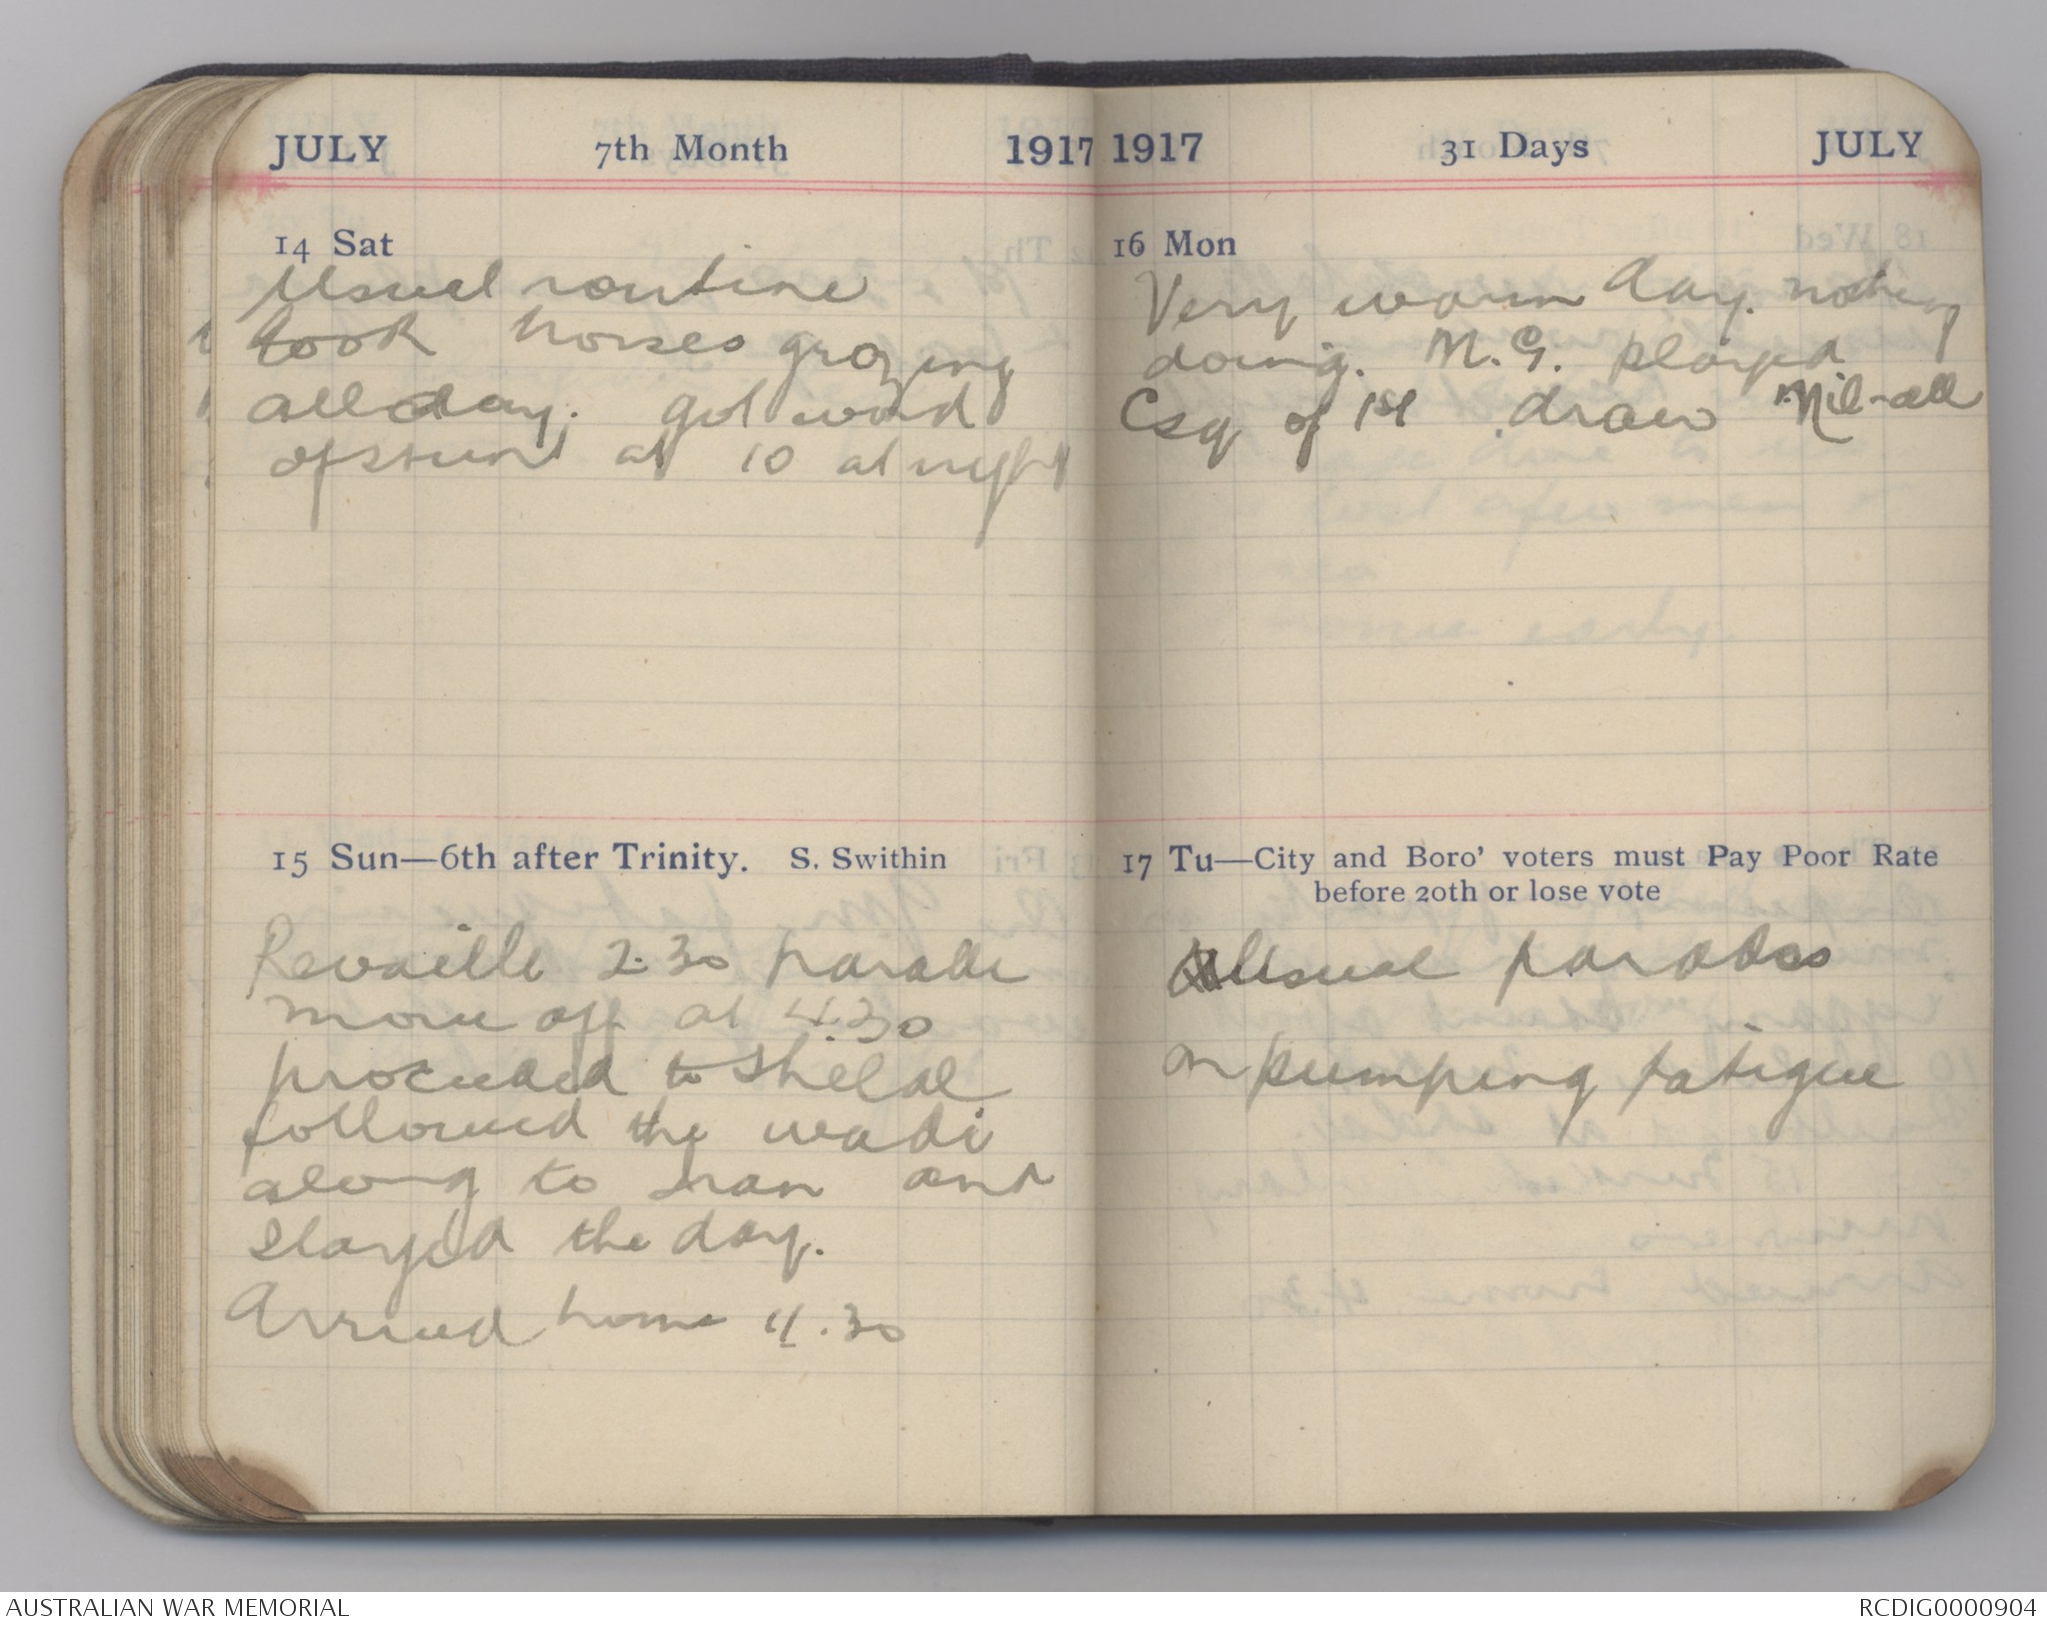 JULY 7th Month 1917
14 Sat
Usual routine
took horses grazing
all day. got word
of stunt at 10 at night
15 Sun—6th after Trinity. S. Swithin
Revaille 2.30 parade
move off at 4.30
proceeded to Shelal
followed the wadi
along to Iran and
stayed the day.
Arrived home 11.30
1917 31 Days JULY
16 Mon
Very warm day. nothing
doing. M.G. played
Csq of 1st draw Nil-all
17 Tu—City and Boro' voters must Pay Poor Rate
before 20th or lose vote
Usual parades
on pumping fatigue
AUSTRALIAN WAR MEMORIAL
RCDIG0000904